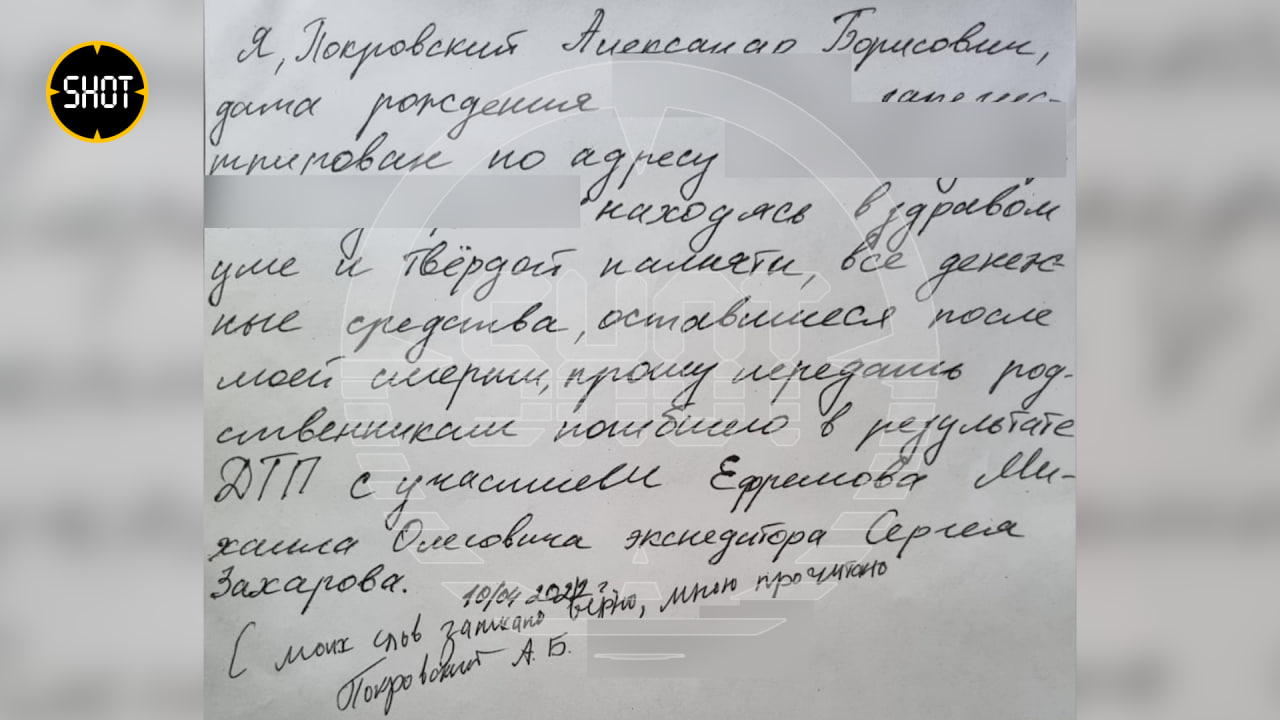 SHOT
Я, Покровский Александр Борисович,
дата рождения зарегис-
трирован по адресу
находясь в здравом
уме и твёрдой памяти, все денеж-
ные средства, оставшиеся после
моей смерти, прошу передать род-
ственникам погибшего в результате
ДТП с участием Ефремова Ми-
хаила Олеговича экспедитора Сергея
Захарова.
10/04 2022 г.
С моих слов записано верно, мною прочитано
Покровский А. Б.